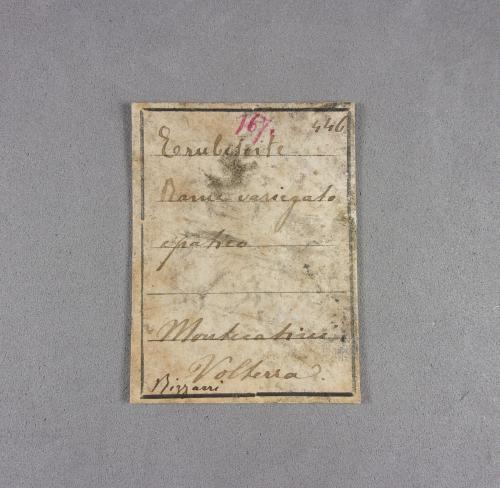 167. 446
Erubescite
Rame variegato
epatico
Montecatini
Volterra.
Bizzarri